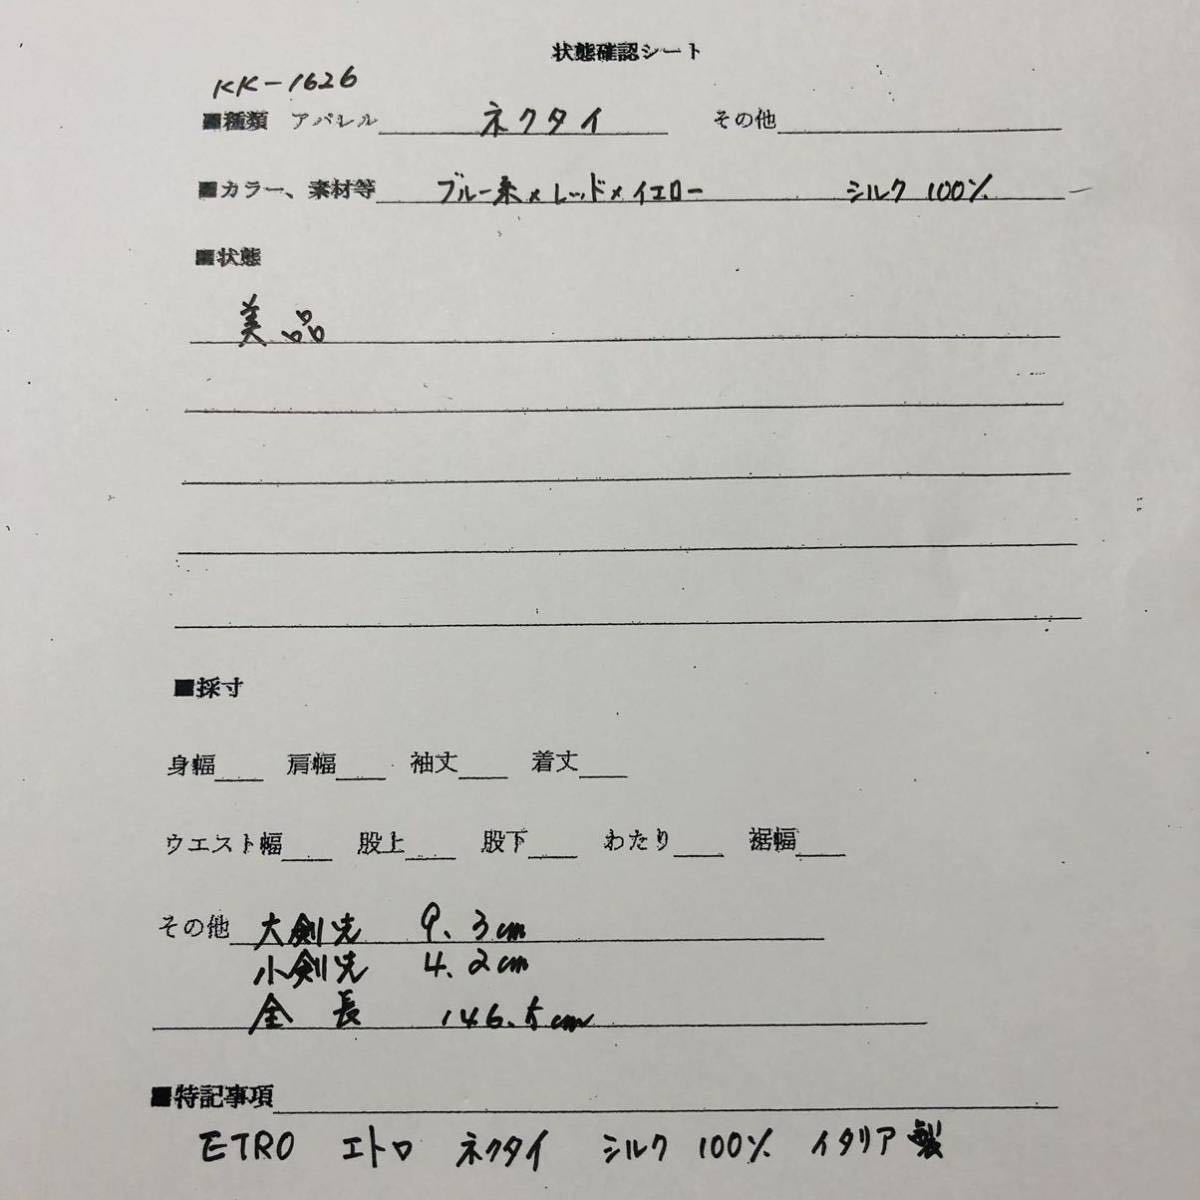 状態確認シート
KK-1626
■種類 アパレル ネクタイ その他
■カラー、素材等 ブルー系×レッド×イエロー シルク 100%
■状態
美品
■採寸
身幅 肩幅 袖丈 着丈
ウエスト幅 股上 股下 わたり 裾幅
その他 大剣先 9.3cm
小剣先 4.2cm
全長 146.5cm
■特記事項
ETRO エトロ ネクタイ シルク 100% イタリア製